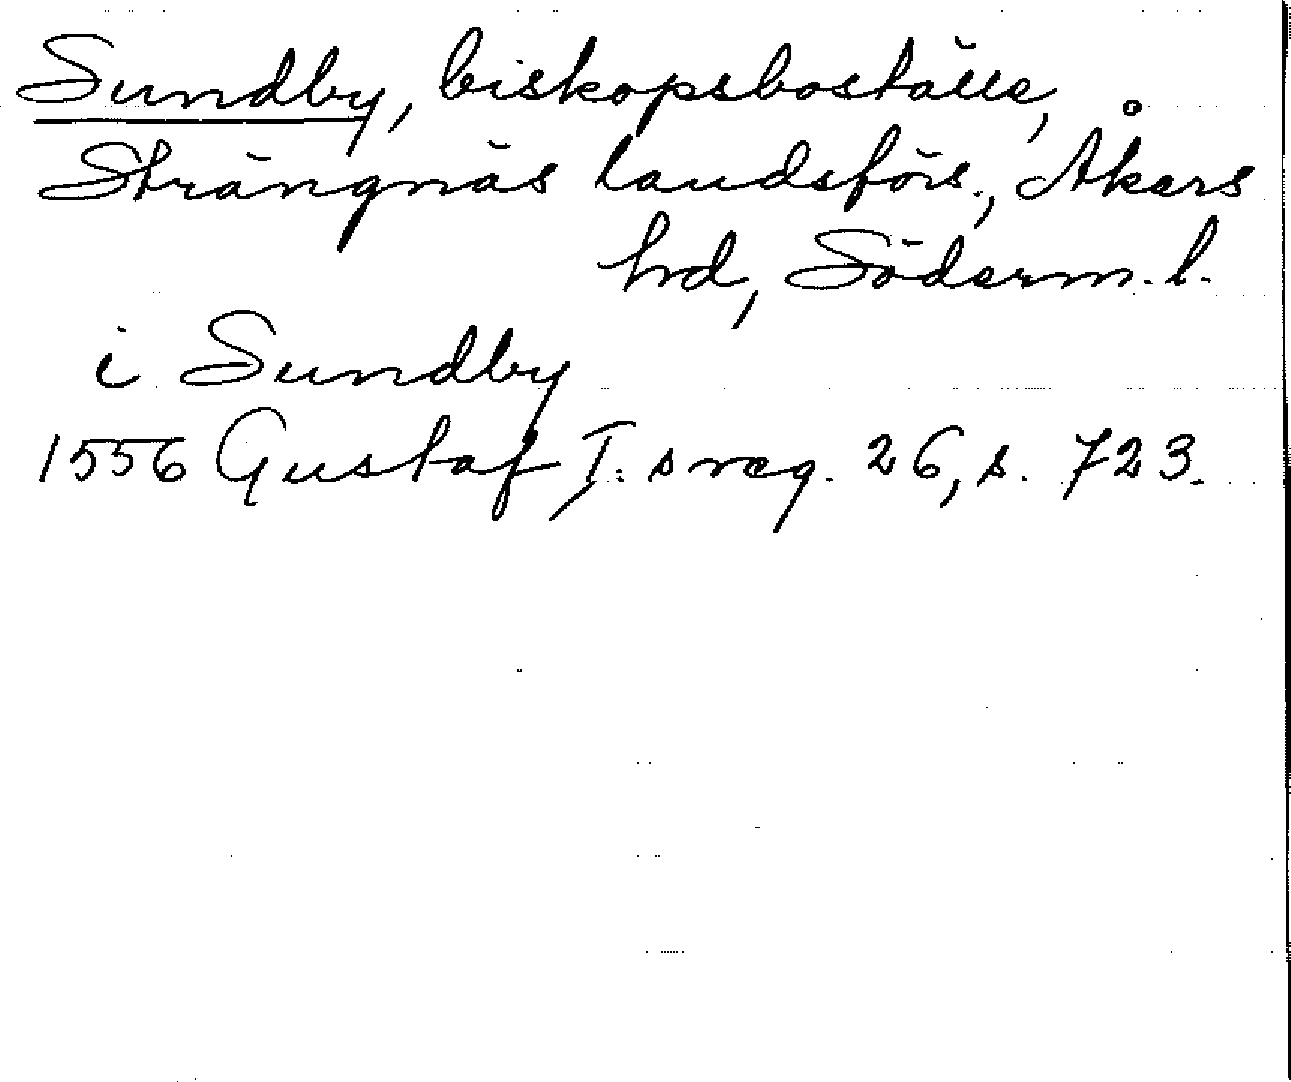 Sundby, biskopsboställe,
Strängnäs landsförs., Åkers
hd, Söderm. l.
i Sundby
1556 Gustaf I:s reg. 26, s. 723.